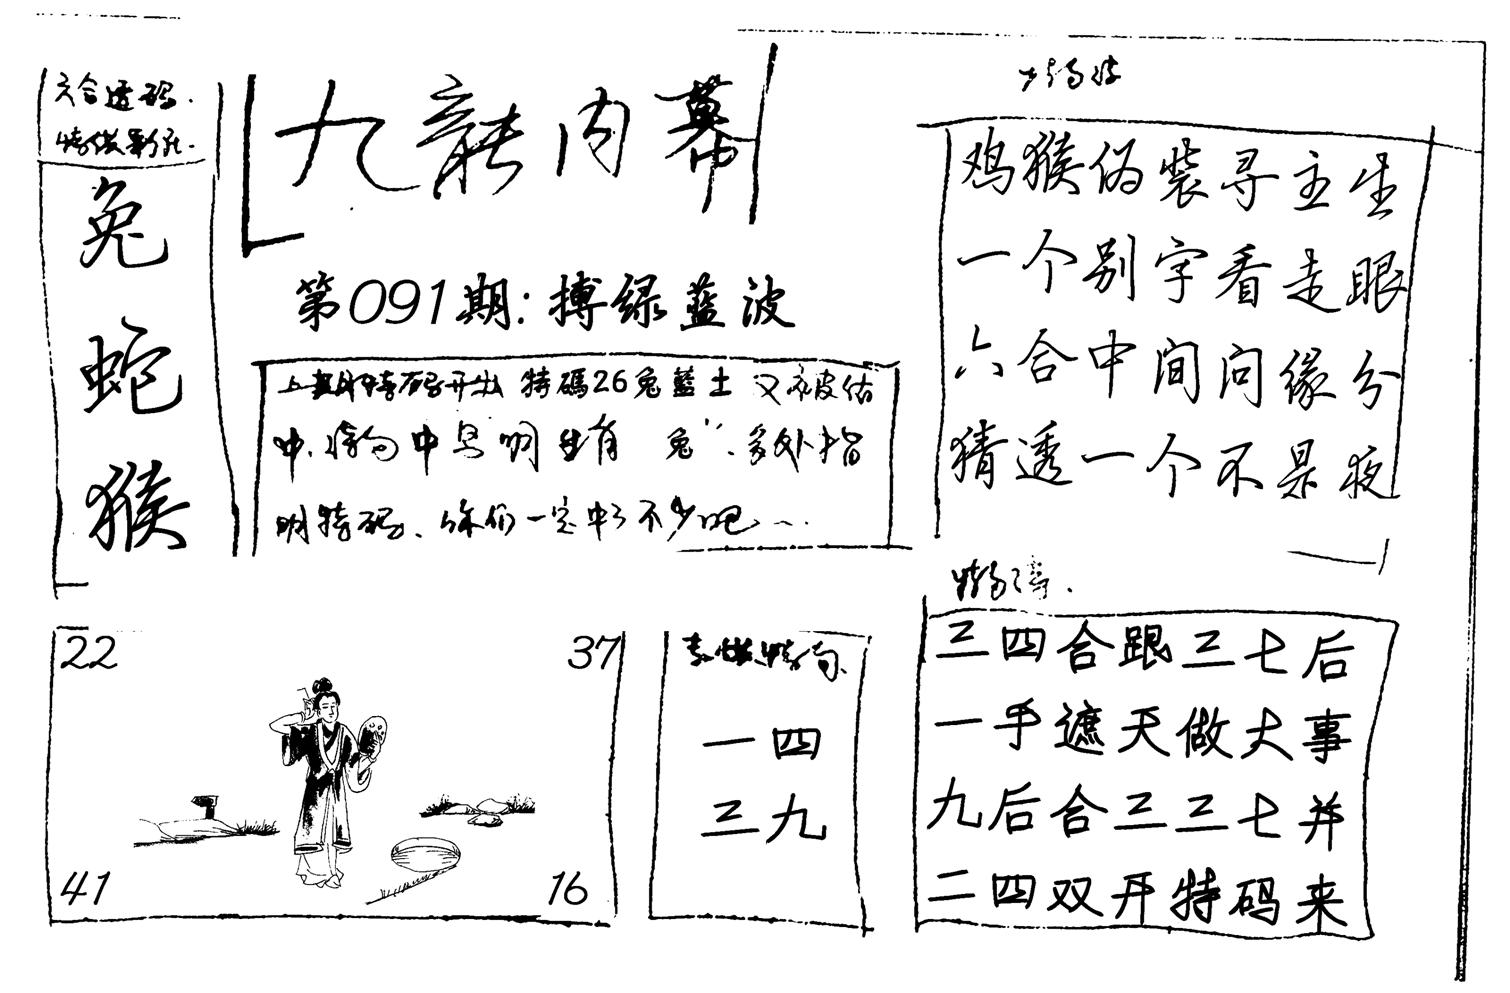 六合透码.
兔
蛇
猴
九龍内幕
第091期:搏绿蓝波
上期特码开出 特碼26兔藍土 又被估
中.特句中另明生肖 兔".多处指
明特码.你们一定中了不少吧...
鸡猴伪装寻主生
一个别字看走眼
六合中间问缘分
猜透一个不是夜
22
37
41
16
一四
三九
三四合跟三七后
一手遮天做大事
九后合三三七并
二四双开特码来